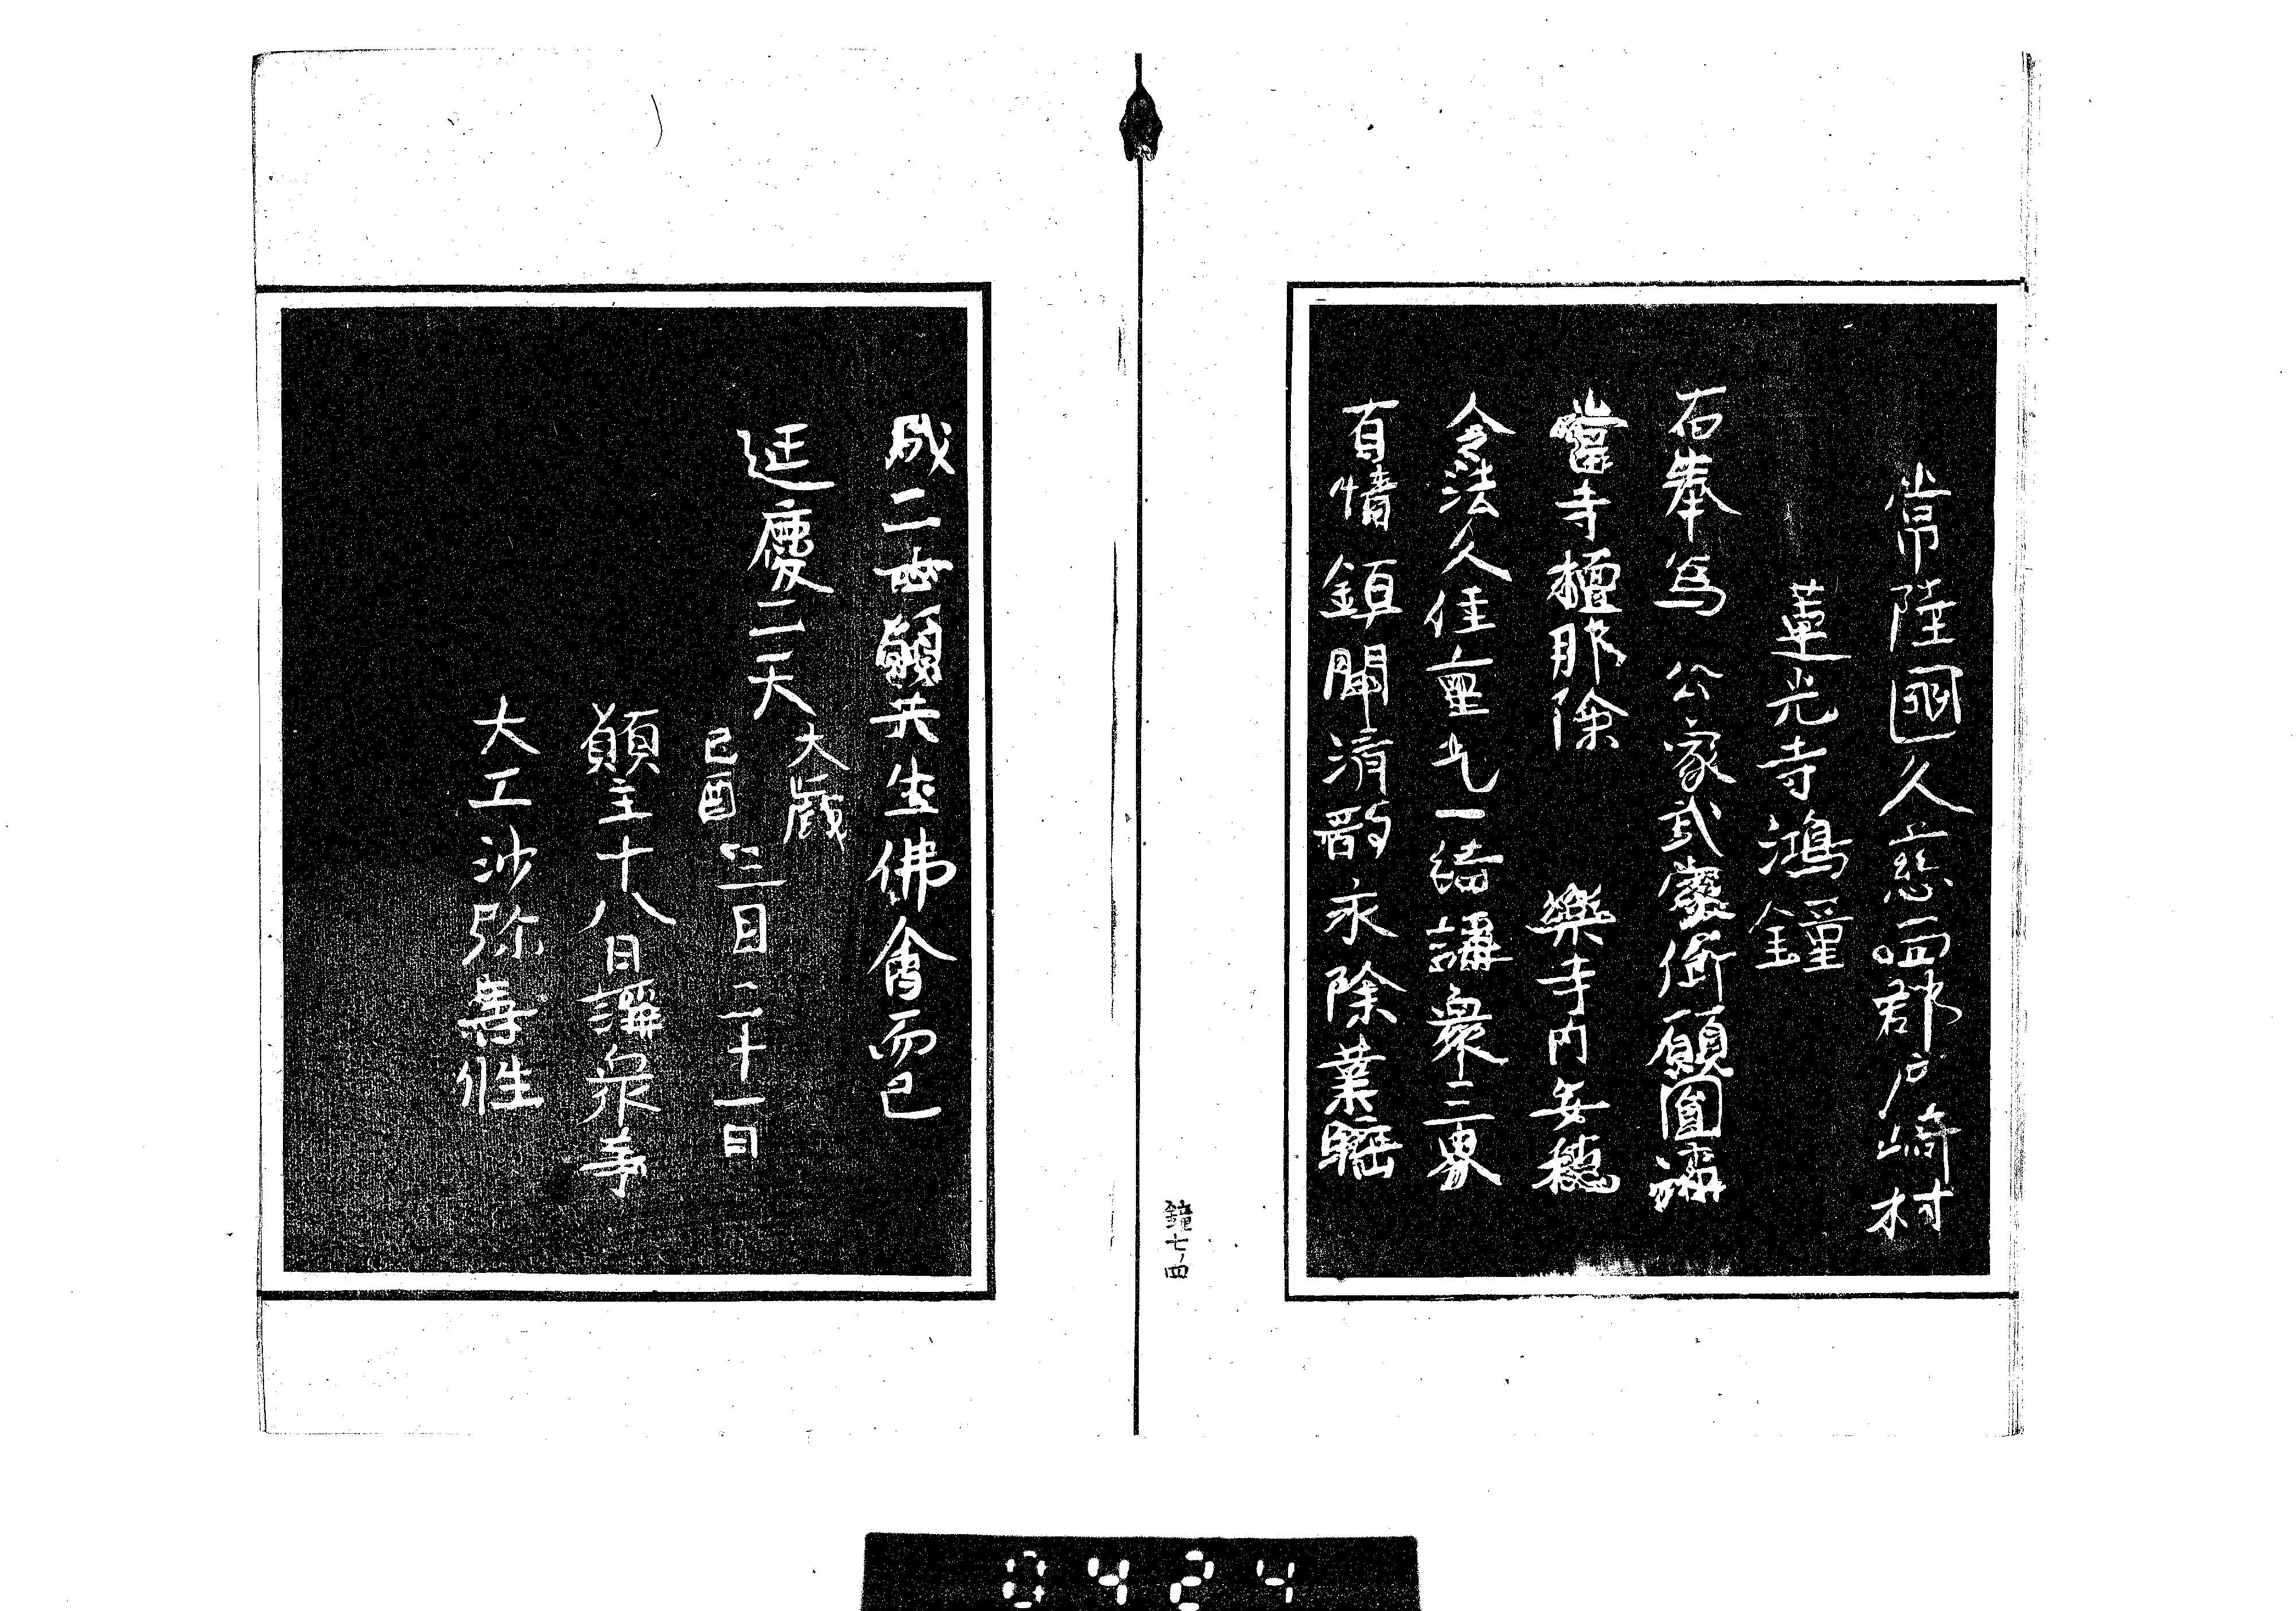 常陸國久慈西郡戸崎村
蓮光寺鴻鐘
右奉爲　公家武家御願圓滿
當寺檀那除　樂寺内安穏
令法久住重乞一結講衆三界
有情鎮聞清韵永除業鄣
成二世願共生佛會而已
延慶二天大歳己酉三月二十一日
願主十八日講衆等
大工沙弥壽性
鐘七ノ四
0424